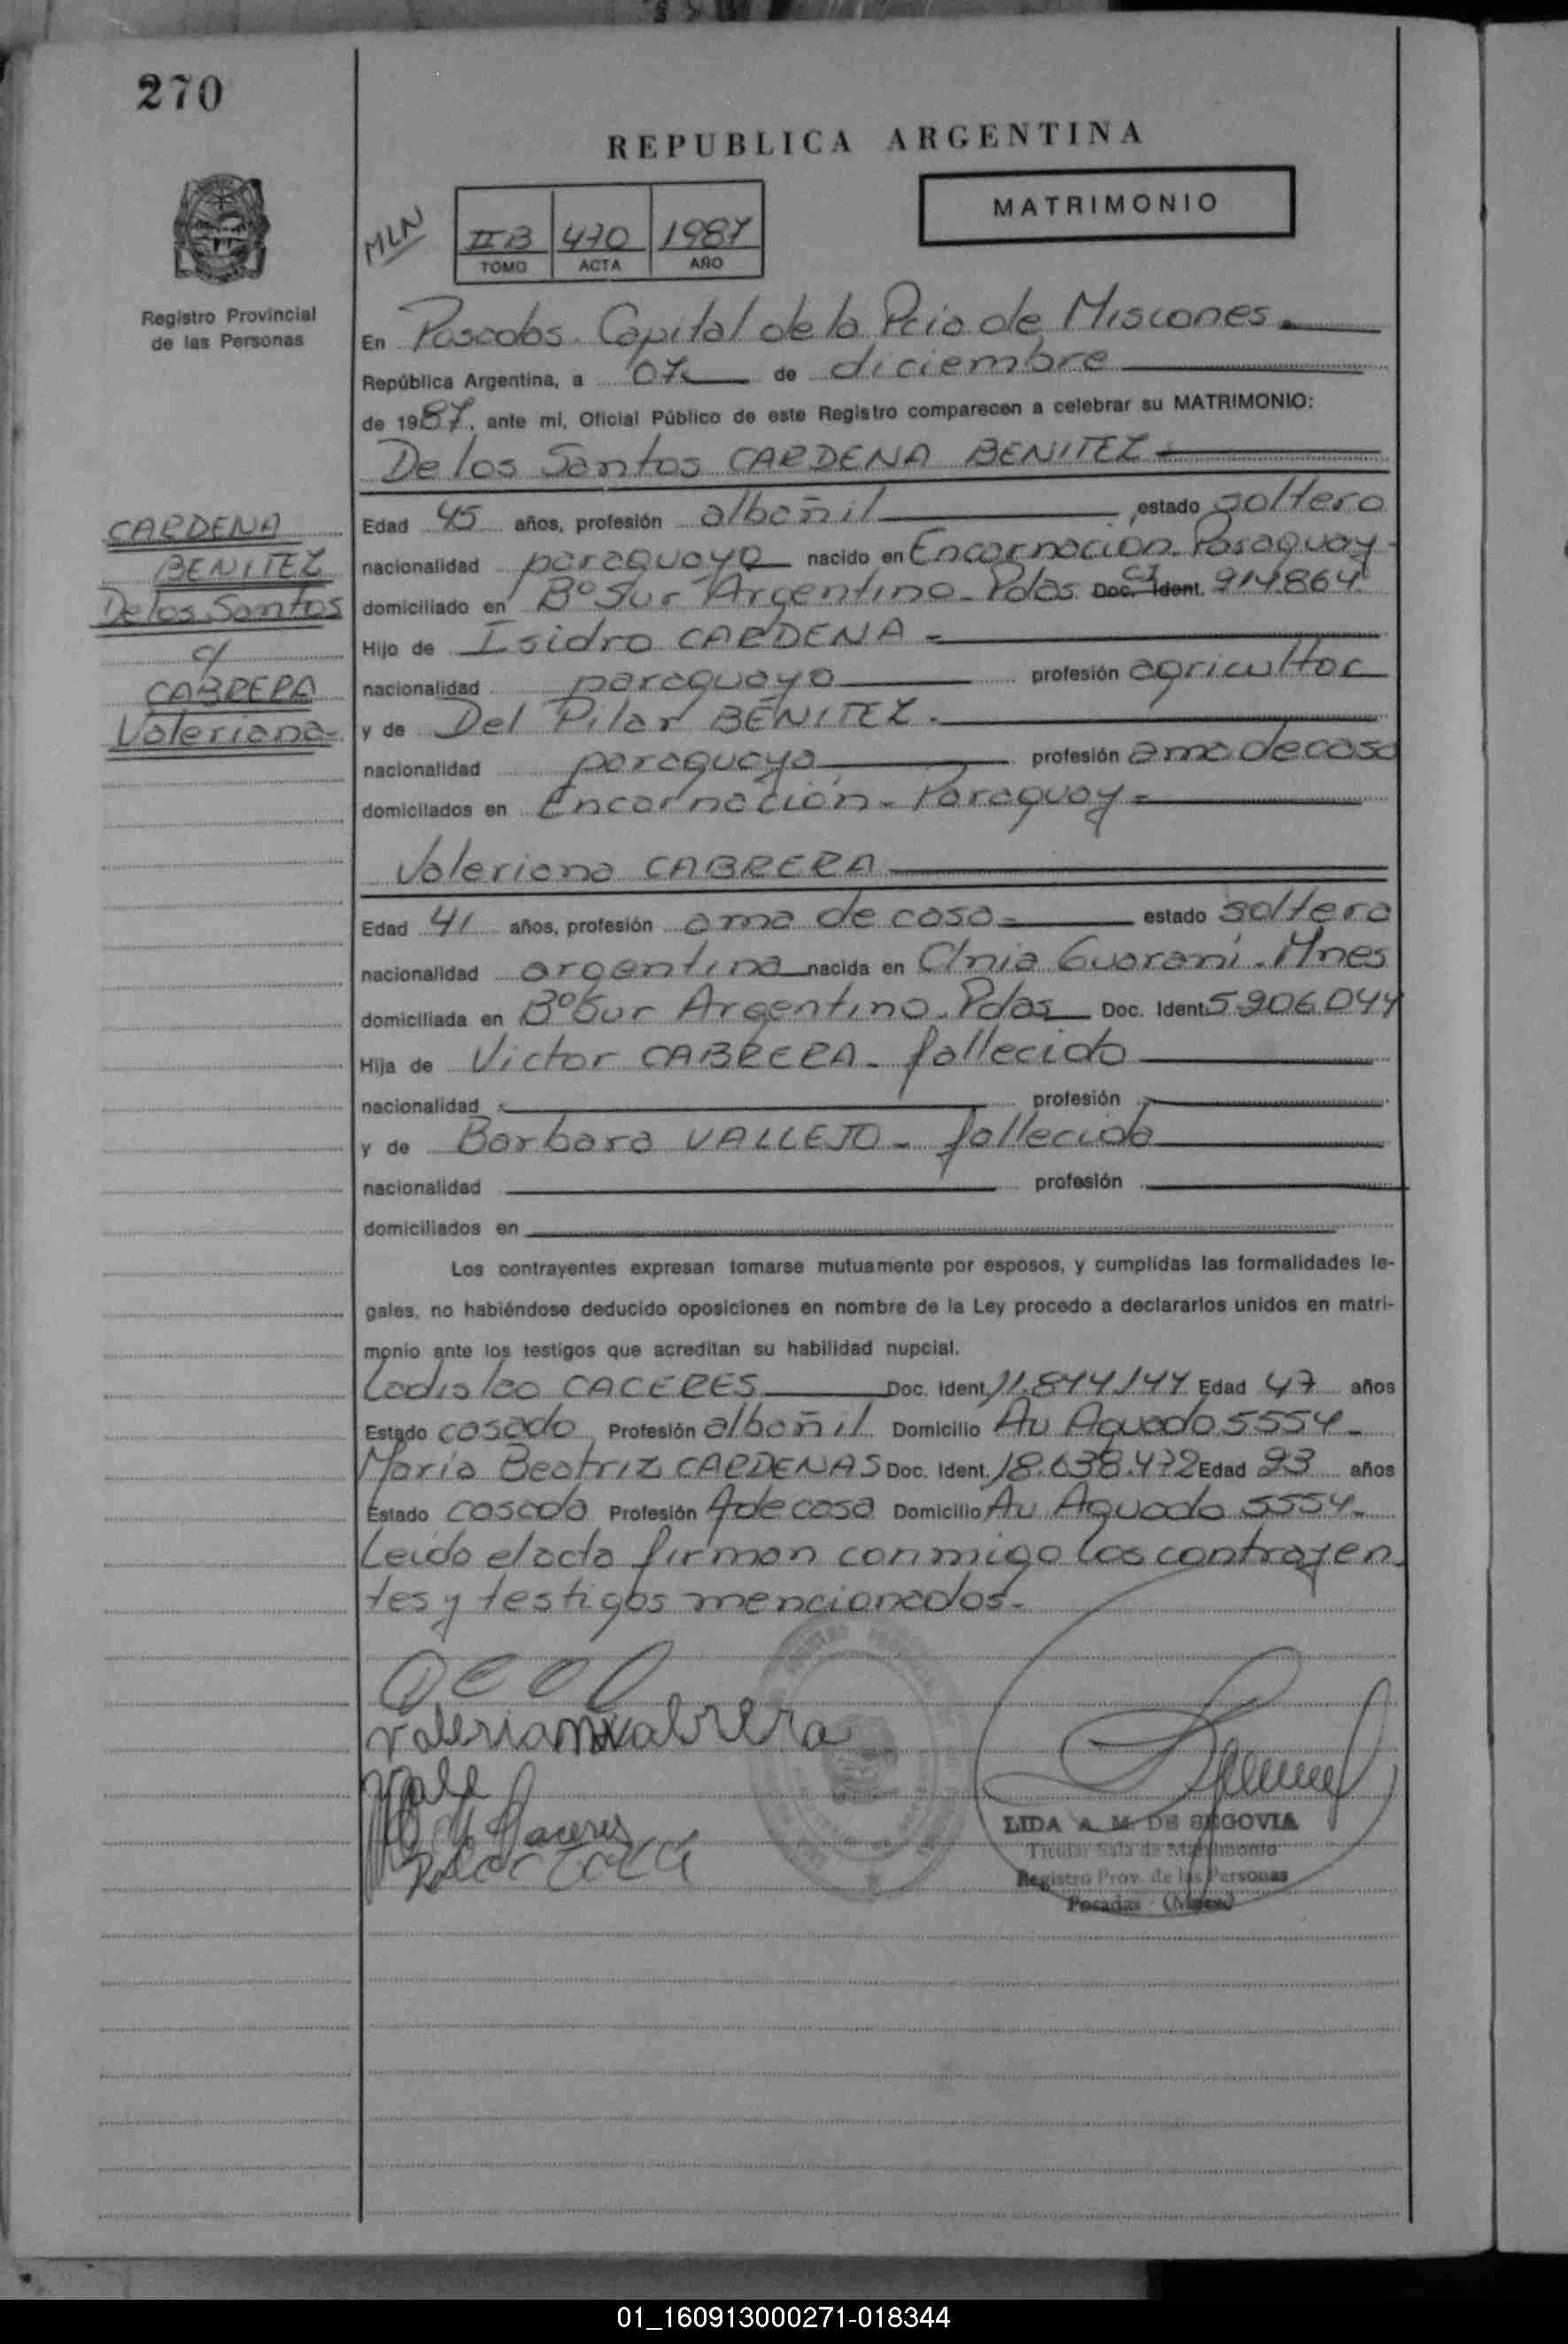 270
REPUBLICA ARGENTINA
MATRIMONIO
MLN
II B 470 1987
TOMO ACTA AÑO
Registro Provincial
de las Personas
En Posadas. Capital de la Pcia de Misiones.
República Argentina, a 07 de diciembre
de 1987, ante mí, Oficial Público de este Registro comparecen a celebrar su MATRIMONIO:
De los Santos CARDENA BENITEZ
CARDENA
BENITEZ
De los Santos
c/
CABRERA
Valeriana
Edad 45 años, profesión albañil estado soltero
nacionalidad paraguaya nacido en Encarnación. Paraguay
domiciliado en Bº Sur Argentino - Pdas Doc. Ident. CI 914.864
Hijo de Isidro CARDENA
nacionalidad paraguayo profesión agricultor
y de Del Pilar BENITEZ.
nacionalidad paraguaya profesión ama de casa
domiciliados en Encarnación - Paraguay
Valeriana CABRERA
Edad 41 años, profesión ama de casa estado soltera
nacionalidad argentina nacida en Clnia Guaraní. Mnes
domiciliada en Bº Sur Argentino. Pdas Doc. Ident. 5.906.044
Hija de Victor CABRERA - fallecido
nacionalidad profesión
y de Barbara VALLEJO - fallecida
nacionalidad profesión
domiciliados en
Los contrayentes expresan tomarse mutuamente por esposos, y cumplidas las formalidades le-
gales, no habiéndose deducido oposiciones en nombre de la Ley procedo a declararlos unidos en matri-
monio ante los testigos que acreditan su habilidad nupcial.
Ladislao CACERES Doc. Ident. 11.844.144 Edad 47 años
Estado casado Profesión albañil Domicilio Av Aguado 5554-
Maria Beatriz CARDENAS Doc. Ident. 18.638.472 Edad 23 años
Estado casada Profesión A de casa Domicilio Av Aguado 5554-
Leida el acta firman conmigo los contrayen
tes y testigos mencionados-
Valeriana Cabrera
LIDA A. M. DE SEGOVIA
Titular Sala de Matrimonio
Registro Prov. de las Personas
Posadas (Mnes)
01_160913000271-018344